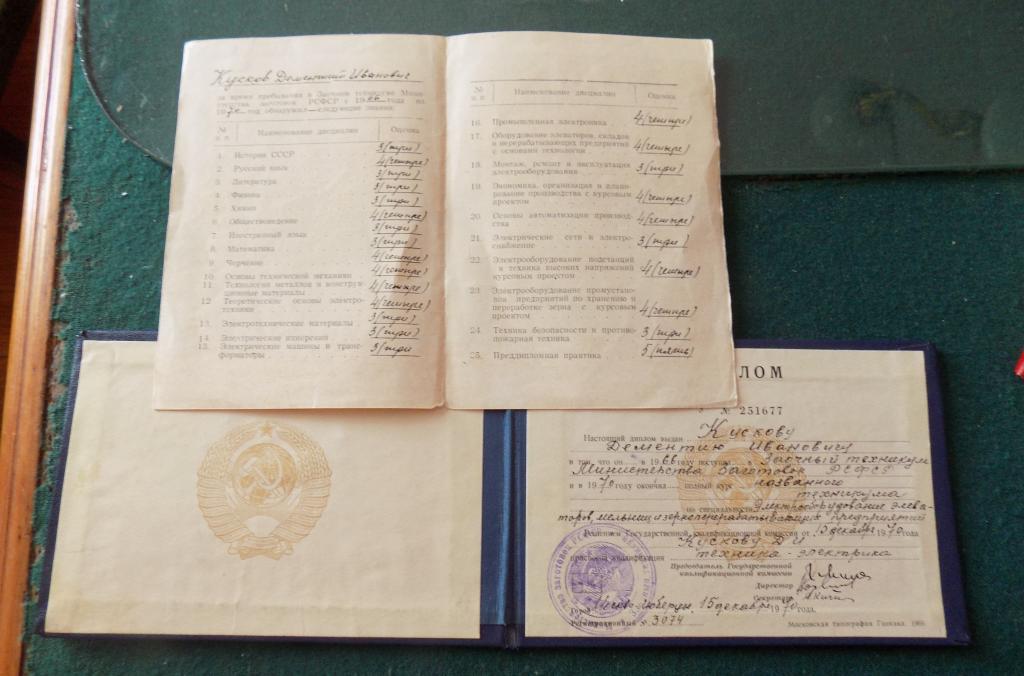 Кусков Дементий Иванович
за время пребывания в Заочном техникуме Мини-
стерства заготовок РСФСР с 1966 года по
1970 год обнаружил следующие знания:
№ п. п. Наименование дисциплин Оценка
1. История СССР 3 (три)
2. Русский язык 4 (четыре)
3. Литература 3 (три)
4. Физика 3 (три)
5. Химия 3 (три)
6. Обществоведение 4 (четыре)
7. Иностранный язык 3 (три)
8. Математика 3 (три)
9. Черчение 4 (четыре)
10. Основы технической механики 4 (четыре)
11. Технология металлов и конструк-
ционные материалы 4 (четыре)
12 Теоретические основы электро-
техники 4 (четыре)
13. Электротехнические материалы 3 (три)
14. Электрические измерения 3 (три)
15. Электрические машины и транс-
форматоры 3 (три
№ п. п. Наименование дисциплин Оценка
16. Промышленная электроника 4 (четыре)
17. Оборудование элеваторов, складов
и перерабатывающих предприятий
с основами технологии 4 (четыре)
18. Монтаж, ремонт и эксплуатация
электрооборудования 3 (три)
19. Экономика, организация и плани-
рование производства с курсовым
проектом 4 (четыре)
20. Основы автоматизации производ-
ства 4 (четыре)
21. Электрические сети и электро-
снабжение 3 (три)
22. Электрооборудование подстанций
и техника высоких напряжений
курсовым проектом 4 (четыре)
23 Электрооборудование промустано-
вок предприятий по хранению и
переработке зерна с курсовым
проектом 4 (четыре)
24. Техника безопасности и противо-
пожарная техника 3 (три)
25. Преддипломная практика 5 (пять)
ЛОМ
№ 251677
Настоящий диплом выдан Кускову
Дементию Ивановичу
в том, что он в 1966 году поступил в Заочный техникум
Министерства Заготовок РСФСР
и в 1970 году окончил полный курс названного
техникума
по специальности Электрооборудование элева-
торов, мельниц и зерноперерабатывающих предприятий
Решением Государственной квалификационной комиссии от 15 декабря 1970 года
Кускову Д И
присвоена квалификация техника-электрика
Председатель Государственной
квалификационной комиссии
Директор
Секретарь
Город Люберцы, 15 декабря 1970 года.
Регистрационный № 3074
Московская типография Гознака. 1969.